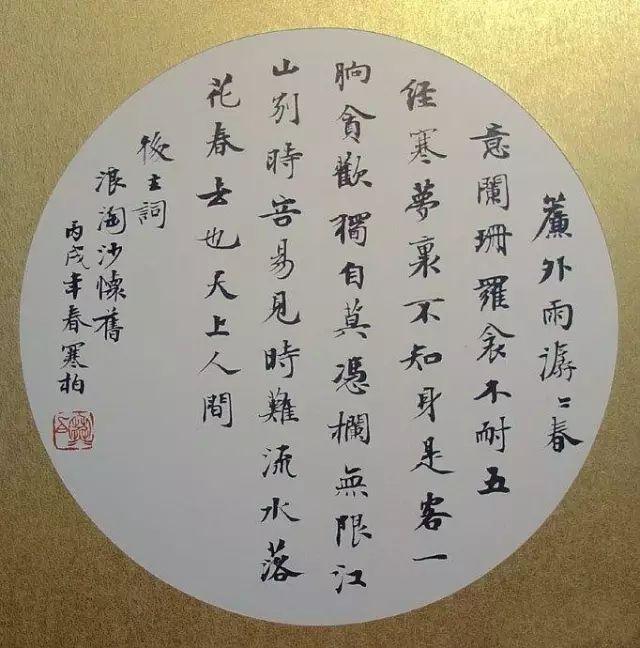 簾外雨潺〻春
意闌珊羅衾不耐五
经寒夢裏不知身是客一
晌貪歡獨自莫憑欄無限江
山别時容易見時難流水落
花春去也天上人間
後主詞
浪淘沙懷舊
丙戌年春寒柏